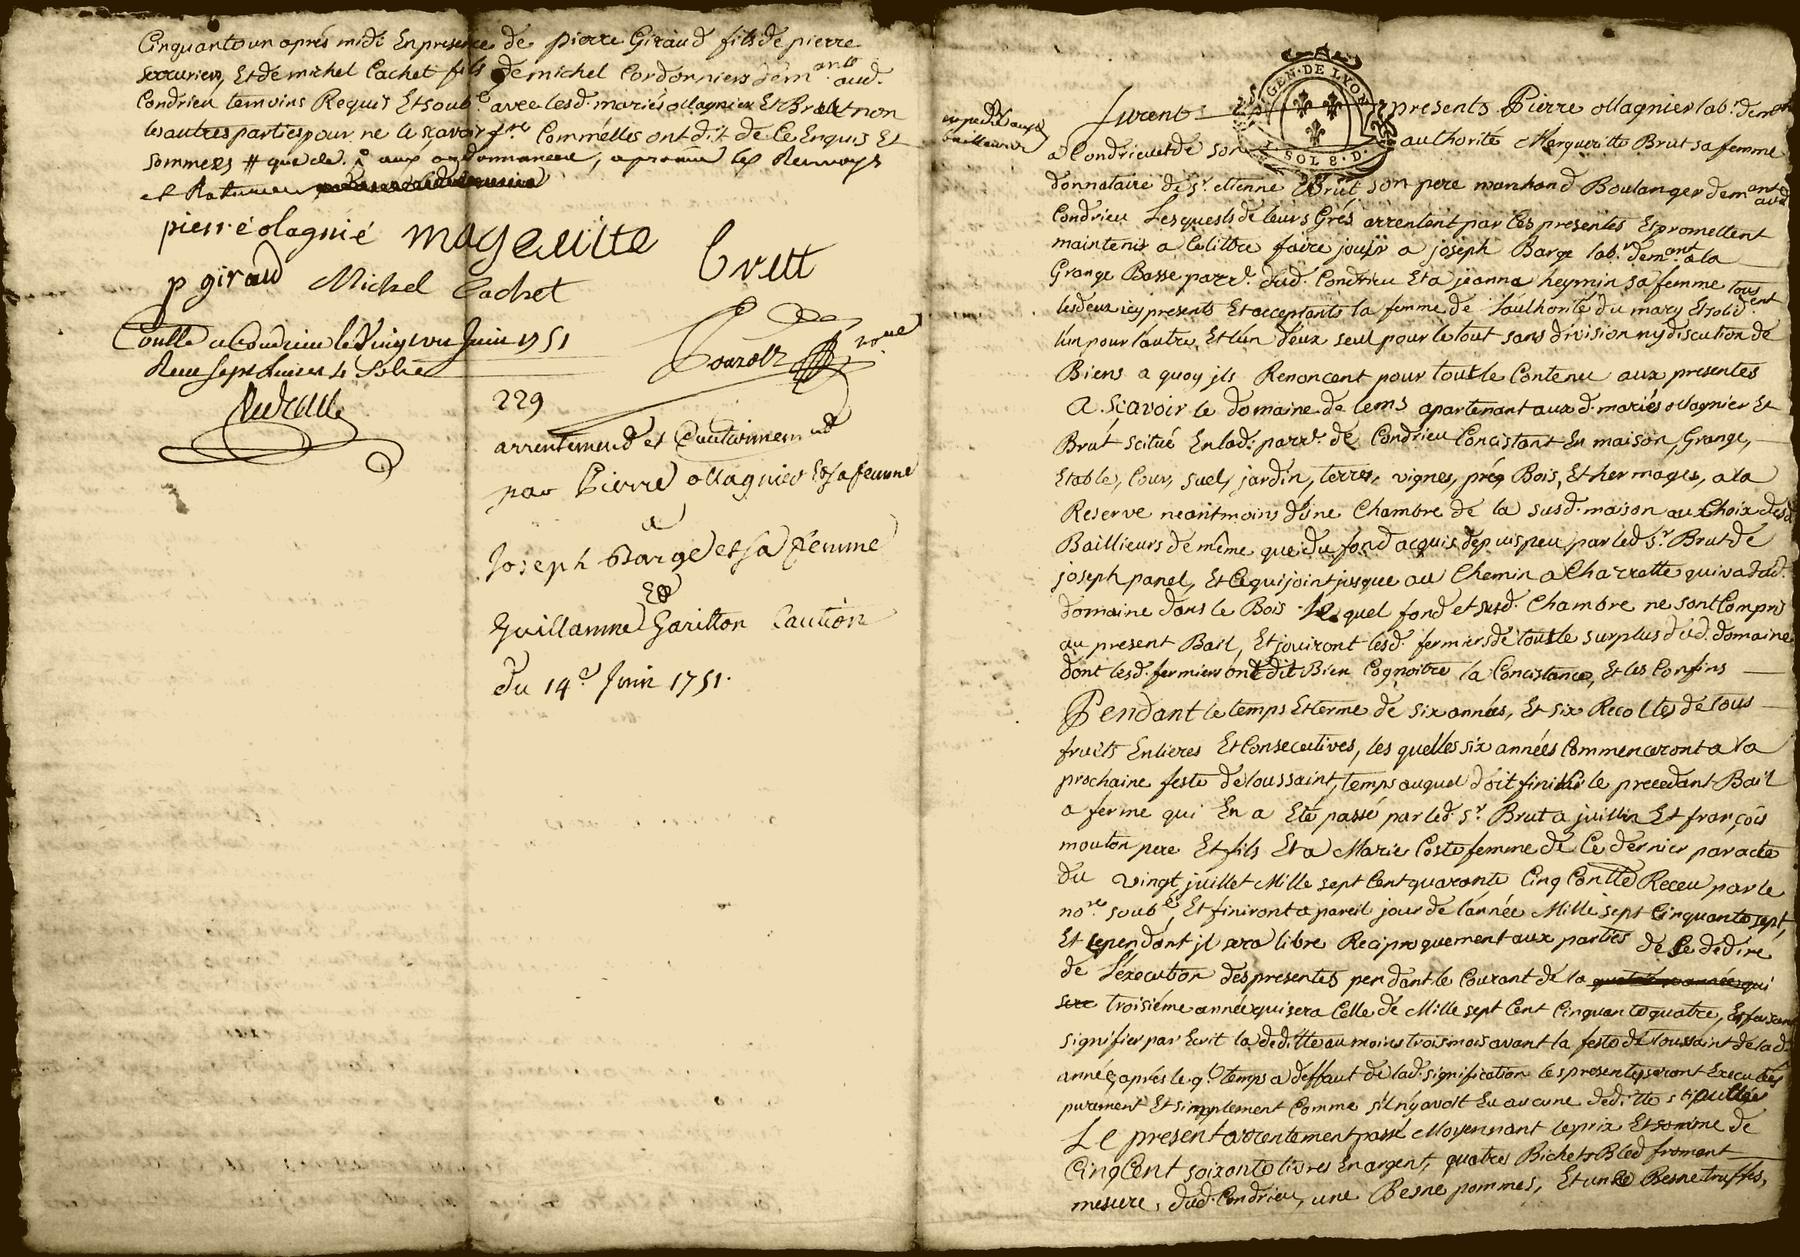 Cinquante un aprés midi En presence de pierre Giraud fils de pierre
serrurier, Et de michel Cachet fils de michel Cordonniers dem.ants aud.
Condrieu temoins Requis Et soub.é avec lesd. mariés ollagnier Et Brut non
les autres parties pour ne le sçavoir f.re Comm'elles ont dit de Ce Enquis Et
sommeés # que de
pierre olagnié mageuitte Brutt
p giraud Michel Cachet
Conllé a Condrieu le Vingt un Juin 1751
Receu sept Livres 4 Sols
229
arrentement et Cautionnement
par Pierre ollagnier Et sa femme
a
Joseph Barge et sa femme
Et
Guillaume Garitton Caution
du 14.e Juin 1751.
GEN. DE LYON
SOL 8. D.
furent presents Pierre ollagnier lab.r dem.ant
a Condrieu et de son authorité Margueritte Brut sa femme
donnataire de s.r etienne Brut son pere marchand Boulanger dem.ant aud.
Condrieu Lesquels de leurs Grés arrentent par Ces presentes Et promettent
maintenir a Celittre faire jouir a joseph Barge lab.r dem.ant a la
Grange Basse parr.e dud. Condrieu Et a jeanne heymin sa femme tous
lesdeux icy presents Et acceptants la femme de L'authorité du mary Et solid.ent
l'un pour l'autre, Et l'un d'eux seul pour le tout sans division ny discution de
Biens a quoy jls Renoncent pour tout le Contenu aux presentes
A. sçavoir le domaine de lems apartenant aux d. mariés ollagnier Et
Brut scitué En lad. parr.e de Condrieu Concistant En maison, Grange,
Etable, Cour, suel, jardin, terres, vignes, prés Bois, Et hermages, a la
Reserve neantmoins d'une Chambre de la susd. maison au Choix desd.
Baillieurs de même que du fond acquis depuis peu par led. S.r Brut de
joseph panel, Et Ce qui joint jusque au Chemin a Charrette qui va aud.
domaine dans le Bois lequel fond et susd. Chambre ne sont Compris
au present Bail, Et jouiront lesd. fermiers de tout le surplus dud. domaine
dont lesd. fermiers ont dit Bien Cognoitre la Concistance, Et les Confins
Pendant le temps Et terme de six années, Et six Recoltes de tous
fruits Entieres Et Consecutives, les quelles six années Commenceront a la
prochaine feste de toussaint, temps auquel doit finir le precedant Bail
a ferme qui En a Eté passé par led. S.r Brut a juillin Et françois
mouton pere Et fils Et a Marie Coste femme de Ce dernier par acte
du vingt juillet Mille sept Cent quarante Cinq Conllé Receu par le
no.re soub.é, Et finiront a pareil jour de l'année Mille sept Cinquante sept,
Et Cependant jl sera libre Reciproquement aux parties de se dedire
de l'execution des presentes pendant le Courant de la quatrieme année qui
sera troisiéme année qui sera Celle de Mille sept Cent Cinquante quatre, En faisant
signifier par Ecrit la deditte au moins trois mois avant la feste de toussaint de lad.
année, aprés le q.l temps a deffaut de lad. signification les presentes seront Executées
purement Et simplement Comme s'il n'y avoit Eu aucune deditte stipullée
Le present arrentement passé Moyennant le prix Et somme de
Cinq Cent soixante livres En argent, quatre Bichets Bled froment
mesure, dud. Condrieu, une Besne pommes, Et une Besne truffes,